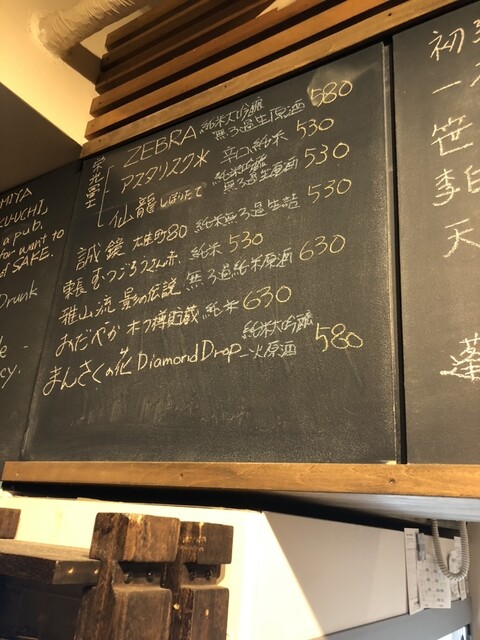 MIYA
KU-UCHI,
a pub.
for want to
SAKE.
Drunk
cy.
栄光冨士
ZEBRA 純米大吟醸 無ろ過生原酒 580
アスタリスク* 辛口純米 530
仙龍 しぼりたて 純米吟醸 無ろ過生原酒 530
誠鏡 雄町80 純米無ろ過生詰 530
東長 むつごろうさん赤 純米 530
雅山流 影の伝説 無ろ過純米原酒 630
おだやか 木樽貯蔵 純米 630
まんさくの花 Diamond Drop 純米大吟醸 一火原酒 580
初
一
笹
李
天
蓬